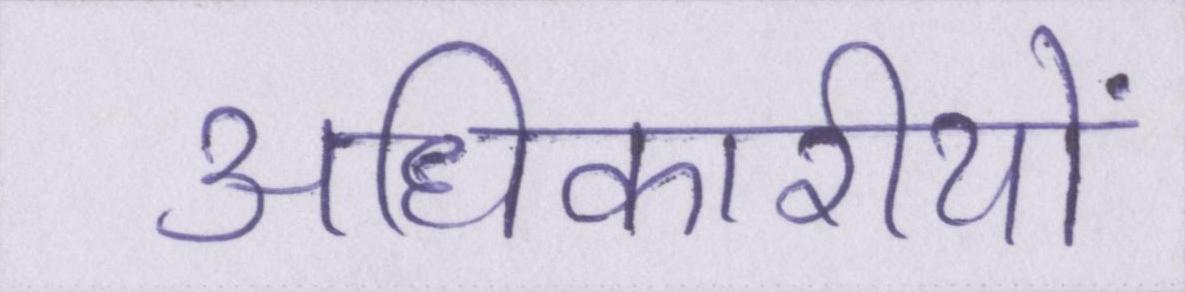 अधिकारीयों